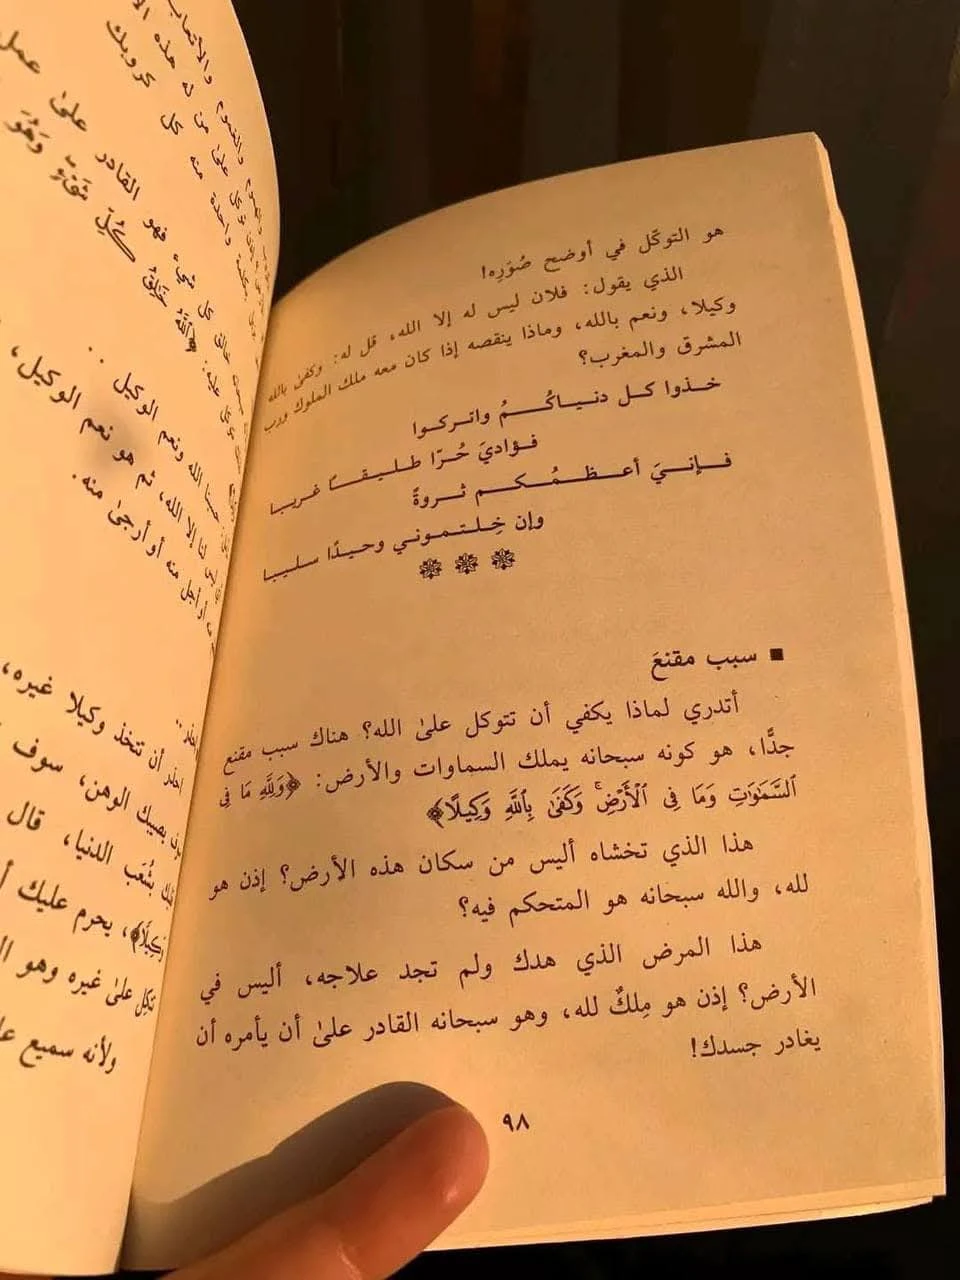 هو التوكّل في أوضح صُوَرِه!
الذي يقول: فلان ليس له إلا الله، قل له: وكفىٰ بالله
وكيلا، ونعم بالله، وماذا ينقصه إذا كان معه ملك الملوك ورب
المشرق والمغرب؟
خذوا كل دنياكُمُ واتركوا
فؤاديَ حُرّا طليقًا غريبا
فإنيَ أعظمُكم ثروةً
وإن خِلتموني وحيدًا سليبا
■ سبب مقنعَ
أتدري لماذا يكفي أن تتوكل علىٰ الله؟ هناك سبب مقنع
جدًّا، هو كونه سبحانه يملك السماوات والأرض: ﴿وَلِلَّهِ مَا فِى
ٱلسَّمَٰوَٰتِ وَمَا فِى ٱلْأَرْضِۚ وَكَفَىٰ بِٱللَّهِ وَكِيلًا﴾
هذا الذي تخشاه أليس من سكان هذه الأرض؟ إذن هو
لله، والله سبحانه هو المتحكم فيه؟
هذا المرض الذي هدك ولم تجد علاجه، أليس في
الأرض؟ إذن هو مِلكٌ لله، وهو سبحانه القادر علىٰ أن يأمره أن
يغادر جسدك!
٩٨
والأتعاب
له هذه الأ
كل كروبك
فهو القادر علىٰ عمل
﴿ٱللَّهُ خَٰلِقُ كُلِّ شَىْءٍ وَهُوَ
الله ونعم الوكيل..
لنا إلا الله، ثم هو نعم الوكيل،
أو أجل منه أو أرجىٰ منه.
احذر أن تتخذ وكيلا غيره،
يصيبك الوهن، سوف
بشُعَب الدنيا، قال
وَكِيلًا﴾، يحرم عليك أ
تتكل علىٰ غيره وهو ا
ولأنه سميع عل